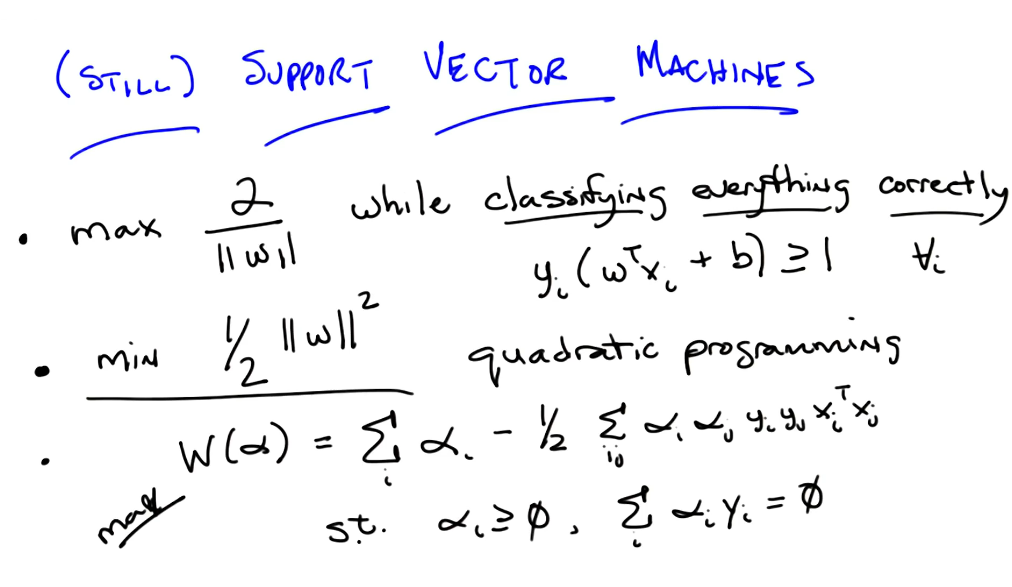 (STILL) SUPPORT VECTOR MACHINES
• max 2/||w|| while classifying everything correctly
yᵢ(wᵀxᵢ + b) ≥ 1 ∀ᵢ
• min 1/2 ||w||² quadratic programming
• W(α) = Σᵢ αᵢ - 1/2 Σᵢⱼ αᵢ αⱼ yᵢ yⱼ xᵢᵀxⱼ
max s.t. αᵢ ≥ ∅, Σᵢ αᵢ yᵢ = ∅